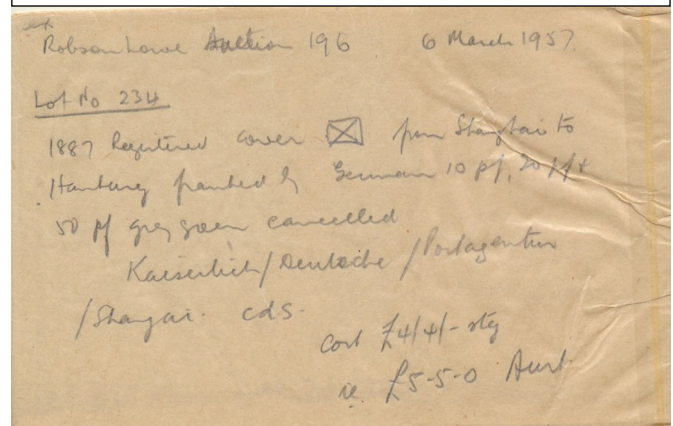 ex
Robson Lowe Auction 196 6 March 1957
Lot No 234
1887 Registered cover from Shanghai to
Hamburg franked by German 10 pf, 20 pf +
50 pf grey green cancelled
Kaiserlich / Deutsche / Postagentur
/ Shangai. cds.
Cost £4/4/- stg
ie £5-5-0 Aust